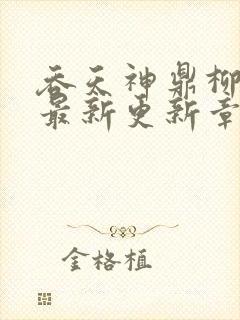 吞天神鼎柳
最新更新章
金格植